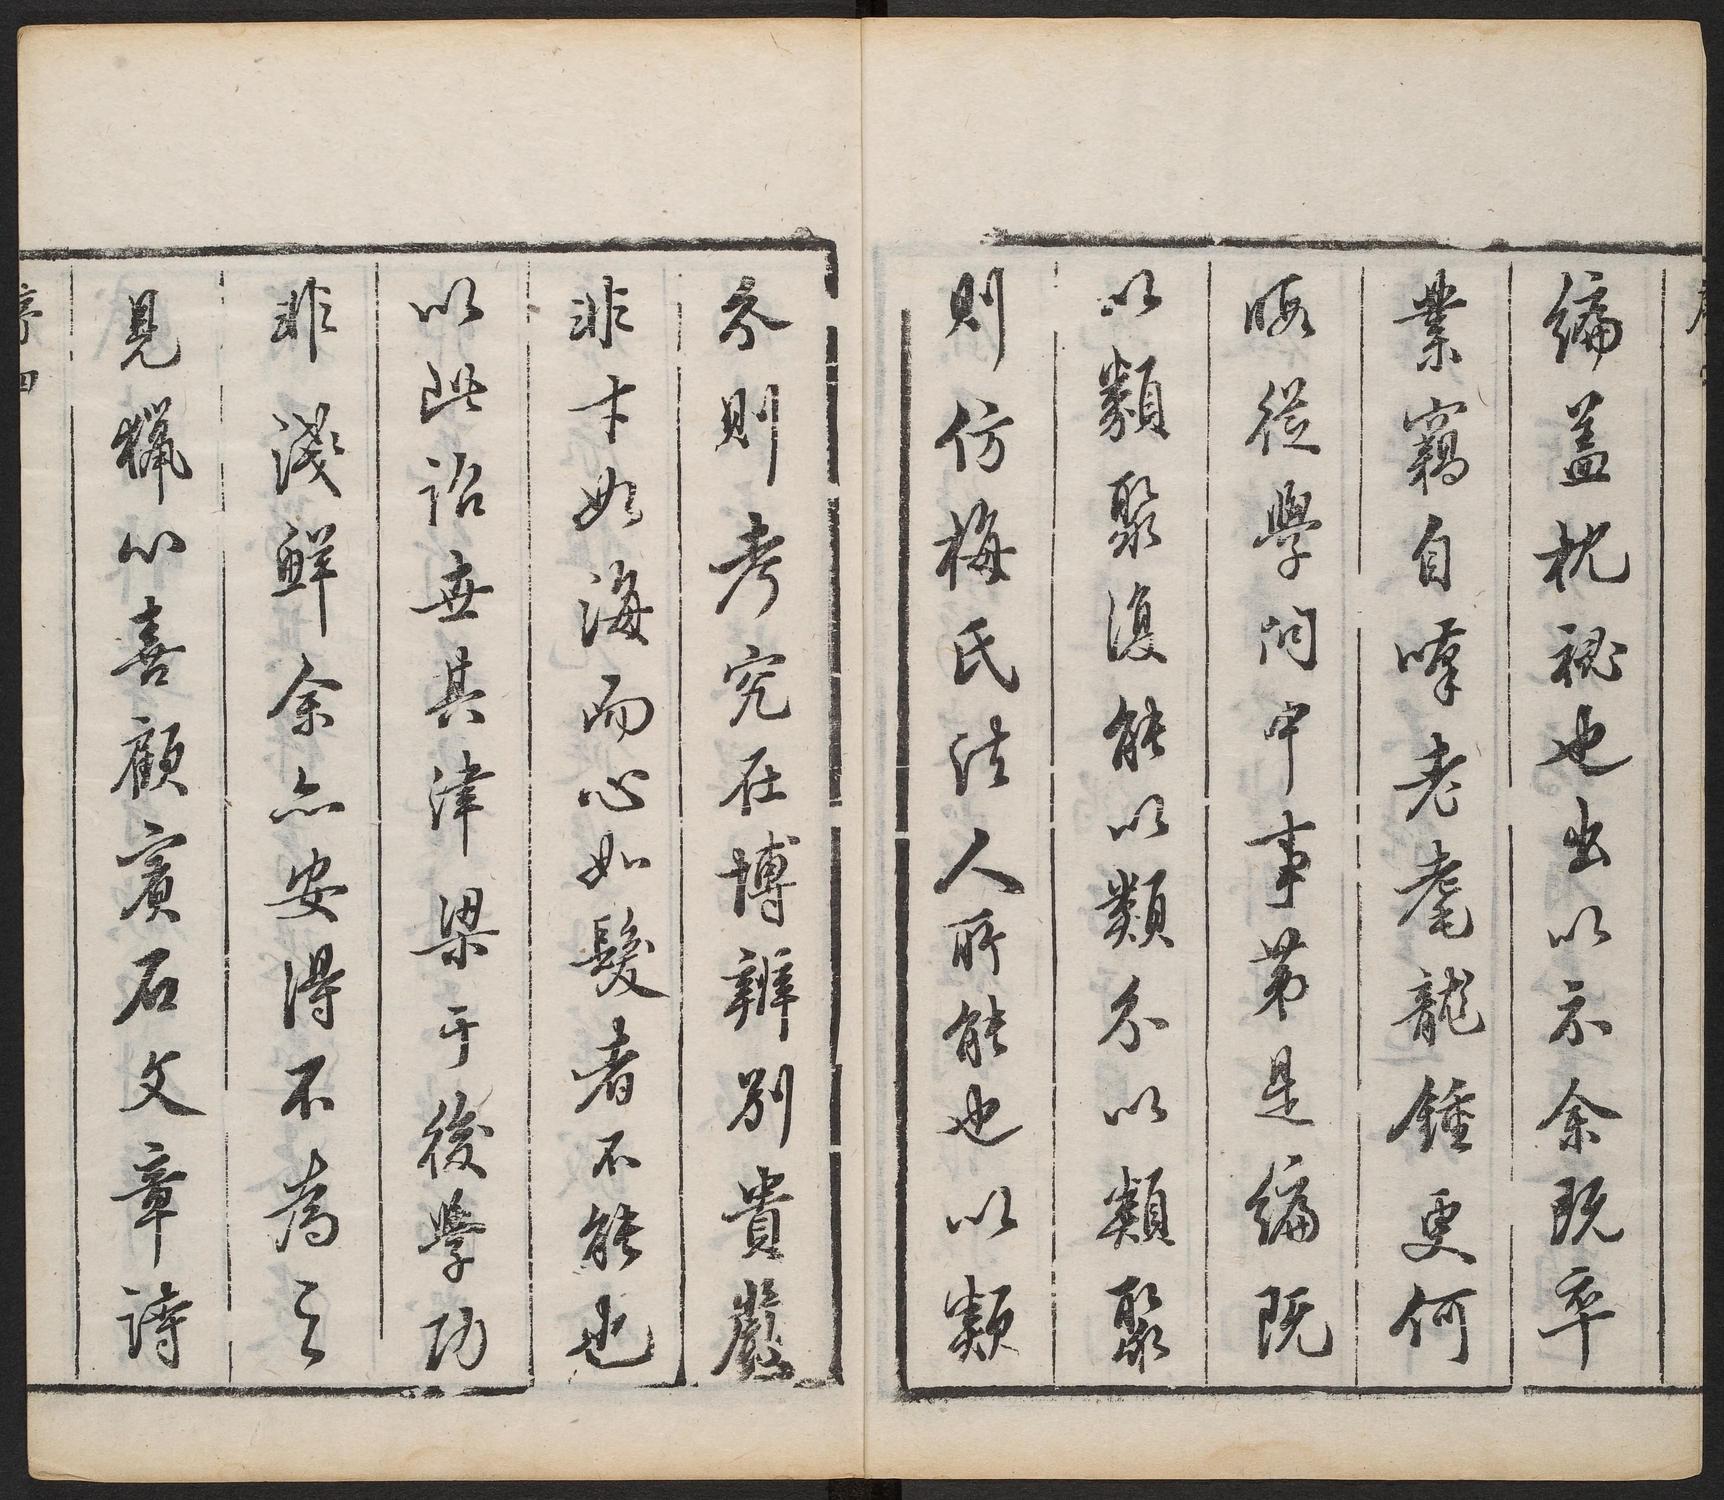 編盖枕秘也出以示余既卒
業竊自嘆老耄龍鍾更何
暇從學問中事第是編既
以類聚復能以類分以類聚
則仿梅氏法人所能也以類
分則考究在博辨別貴嚴
非才如海而心如髮者不能也
以此詔世其津梁于後學功
非淺鮮余亦安得不為之
見獵心喜顧賓石文章詩
序四